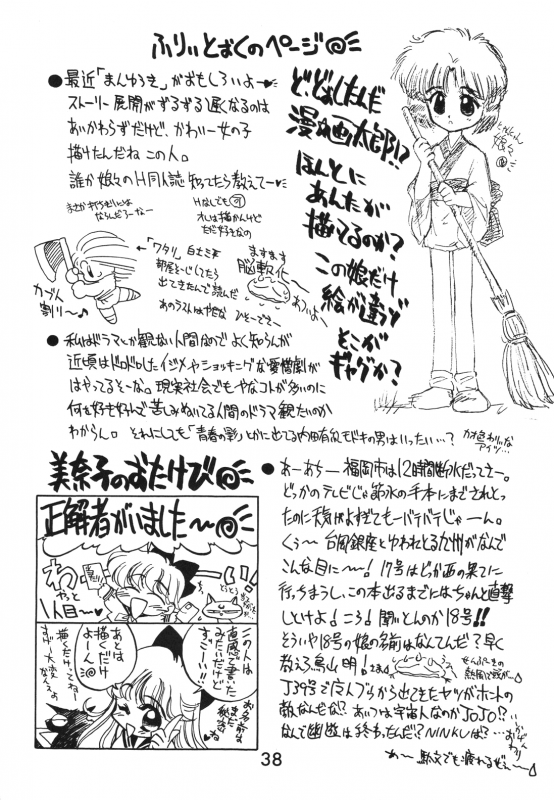 ふりぃとぉくのページ
●最近「まんゆうき」がおもしろいよー♥
ストーリー展開がずるずる遅くなるのは
あいかわらずだけど、かわいー女の子
描けたんだね この人。
誰か娘々のH同人誌知ってたら教えてー♥
Hなしでも可
オレは描かんけど
ただ好きなの
ど、どぉしたんだ
漫☆画太郎!?
ほんとに
あんたが
描いてるのか?
この娘だけ
絵が違うぞ
そこが
ギャグか?
娘々
カブト
割り〜♪
←「ワタリ」白土三平
部屋そーじしてたら
出てきたんで読んだ
あのラストはやだな ひでーでー
ますます
脳軟化
●私はドラマとか観ない人間なので よく知らんが
近頃はドロドロしたイジメやショッキングな愛憎劇が
はやってるそーな。現実社会でもやなコトが多いのに
何も好き好んで苦しみぬいてる人間のドラマ観たいのか
わからん。 それにしても「青春の影」とかに出てる内田有紀モドキの男はいったい…?
美奈子のおたけび
正解者がいました〜
わーい!
やっと
1人目〜♥
この人は
直感で言った
みたいだけど
すごーい!!
あとは
描くだけ
よーん
●あーあちー 福岡市は12時間断水だってさー。
どっかのテレビじゃ節水の手本にまでされとっ
たのに天気がよすぎてもーバテバテじゃーん。
くぅ〜 台風銀座とゆわれとる九州がなんで
こんな目に〜! 17号はどっか西の果てに
行っちまうし、この本出るまでにはちゃんと直撃
しとけよ!こら!聞いとんのか18号!!
そういや18号の娘の名前はなんてんだ?早く
教えろ鳥山明!
J39号で床んプらから出てきたヤツがホントの
敵なんだな!?あいつは宇宙人なのかJOJO!?
なんで幽遊は終わったんだ?NINKUは?…
あ〜 駄文でも疲れるぜぇ〜
38